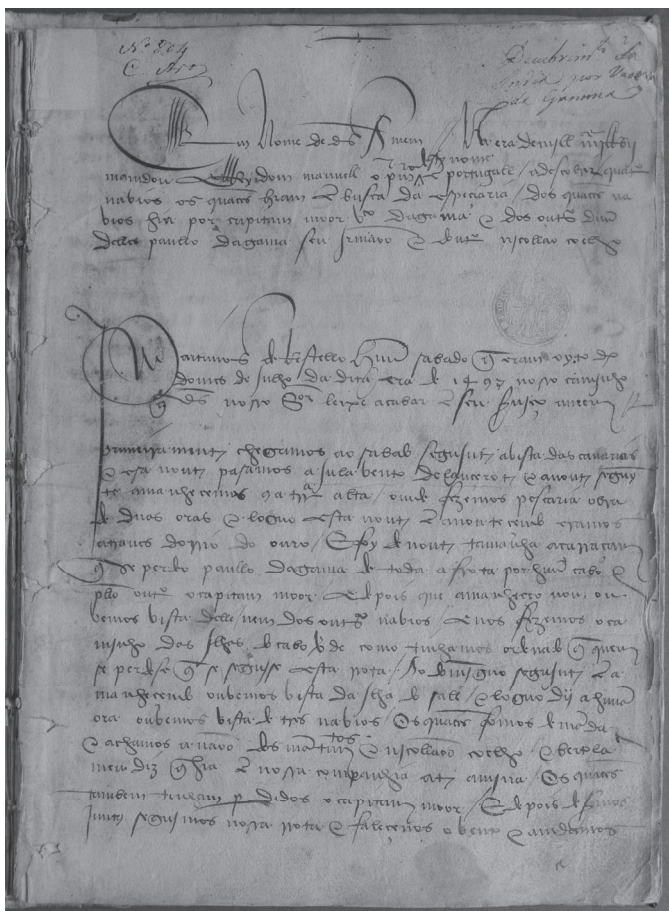 Nº 804
Descobrimtº da
India por Vasco
da Gamma
Em Nome de ds Amem // Na era de mill
mamdou ell Rey dom manuell o primrº deste nome portugall / a descobrir quatro
navios os quaees hiam em busca da especiaria / dos quaees na
vios hia por capitam moor Vco dagama e dos outrs duus
delles paullo dagama seu Irmaão e doutº nicollao coelho
Partimos de Restello huũ sabado q eram oyto dias
do mes de Julho da dita era de 1497 nosso caminho
q ds nosso Sor leixe acabar em seu serviço amem //
primeiramente chegamos ao sabado seguinte a vista das canarias
e esa noute pasamos a julavento de lancerote e a noute seguim
te amanhecemos com a terra alta / omde fezemos pescaria obra
de duas oras e loguo esta noute em anoutecemdo eramos
atraves do rrio do ouro / E foy de noute tamanha a carraçam
q se perdeo paullo dagama de toda a frota por huũ cabo e
pllo outro o capitam moor e depois que amanheceo nom ou
vemos vista delle nem dos outrs navios e nos fezemos o ca
minho das Ilhas do cabo verde como tinhamos ordenado q quem
se perdese q se seguise esta rota / Ao dominguo seguinte em a
manhecemdo ouvemos vista da Ilha do sall / e loguo dy a huũa
ora ouvemos vista de tres navios / Os quaees fomos demandar
e achamos a naao dos mantimentos e nicollao coelho e bertola
meu diz q hia em nossa companhia ate a mina / Os quaees
tambem tinham perdidos o capitam moor / E depois de sermos
Juntos seguimos nossa rota e faleceonos o vento e amdamos